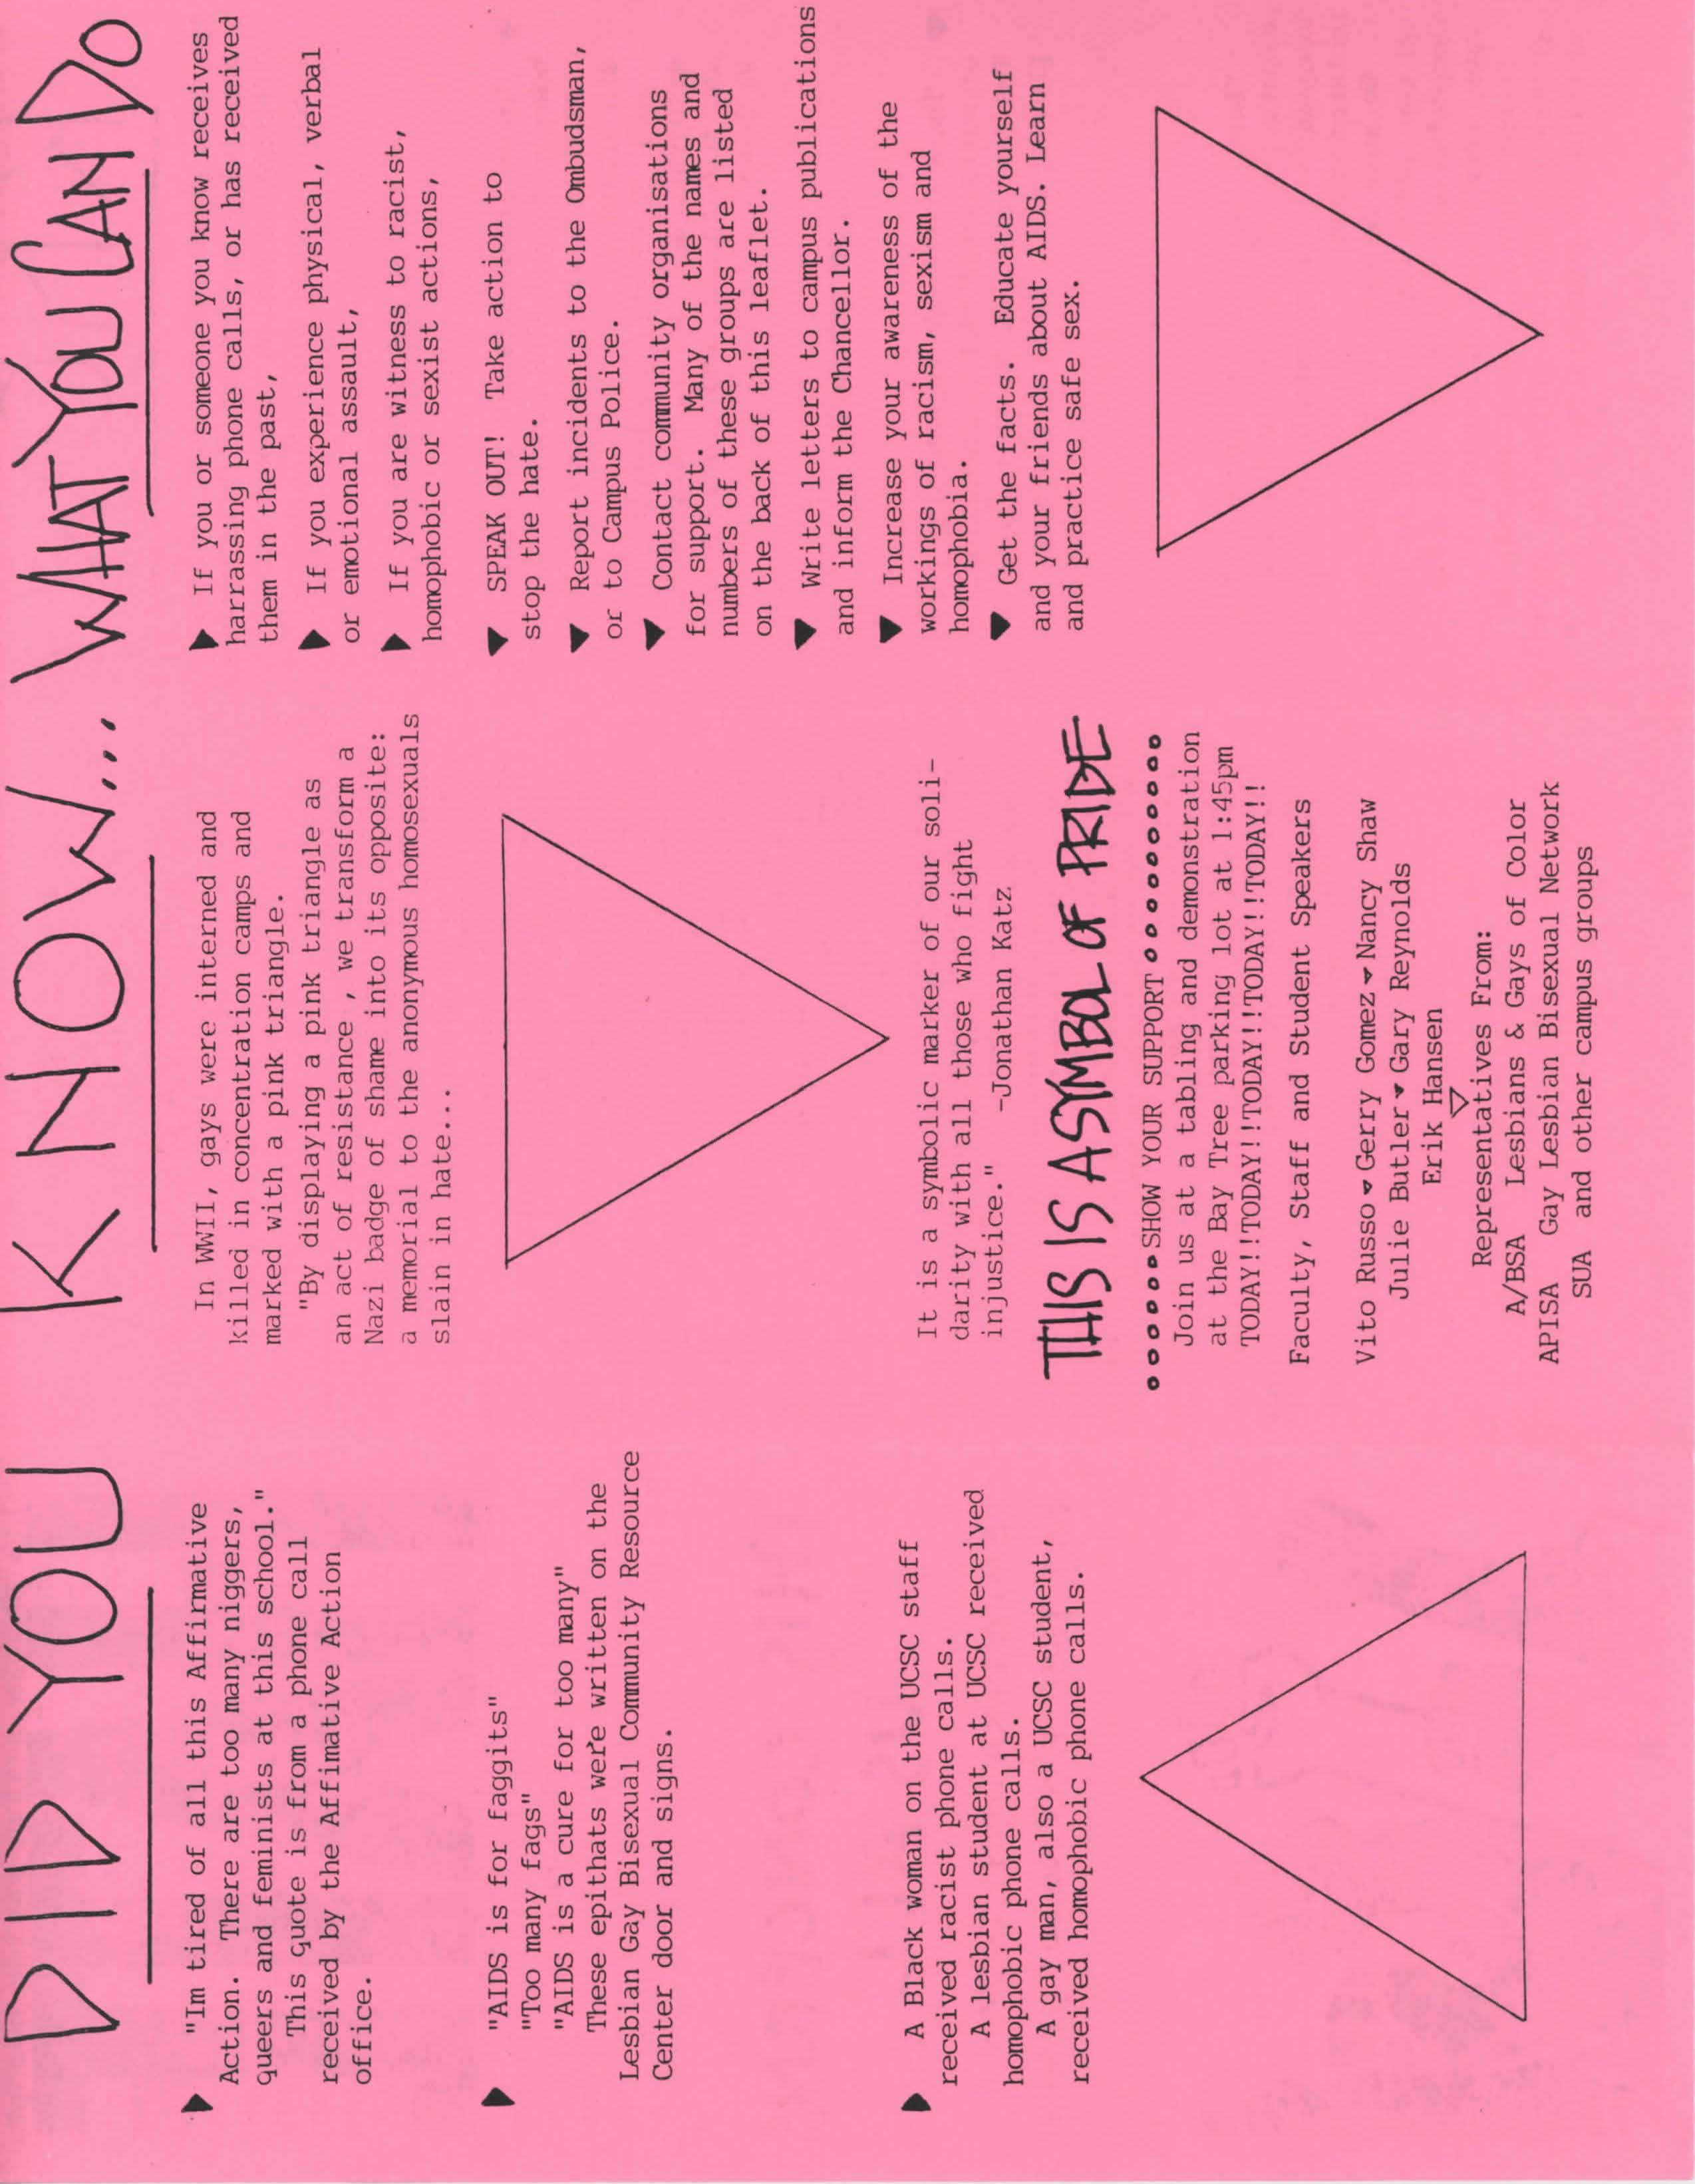 DID YOU KNOW... WHAT YOU CAN DO
"Im tired of all this Affirmative
Action. There are too many niggers,
queers and feminists at this school."
This quote is from a phone call
received by the Affimative Action
office.
"AIDS is for faggits"
"Too many fags"
"AIDS is a cure for too many"
These epithats were written on the
Lesbian Gay Bisexual Community Resource
Center door and signs.
A Black woman on the UCSC staff
received racist phone calls.
A lesbian student at UCSC received
homophobic phone calls.
A gay man, also a UCSC student,
received homophobic phone calls.
In WWII, gays were interned and
killed in concentration camps and
marked with a pink triangle.
"By displaying a pink triangle as
an act of resistance , we transform a
Nazi badge of shame into its opposite:
a memorial to the anonymous homosexuals
slain in hate...
It is a symbolic marker of our soli-
darity with all those who fight
injustice." -Jonathan Katz
THIS IS A SYMBOL OF PRIDE
SHOW YOUR SUPPORT
Join us at a tabling and demonstration
at the Bay Tree parking lot at 1:45pm
TODAY!!TODAY!!TODAY!!TODAY!!TODAY!!
Faculty, Staff and Student Speakers
Vito Russo Gerry Gomez Nancy Shaw
Julie Butler Gary Reynolds
Erik Hansen
Representatives From:
A/BSA Lesbians & Gays of Color
APISA Gay Lesbian Bisexual Network
SUA and other campus groups
If you or someone you know receives
harrassing phone calls, or has received
them in the past,
If you experience physical, verbal
or emotional assault,
If you are witness to racist,
homophobic or sexist actions,
SPEAK OUT! Take action to
stop the hate.
Report incidents to the Ombudsman,
or to Campus Police.
Contact community organisations
for support. Many of the names and
numbers of these groups are listed
on the back of this leaflet.
Write letters to campus publications
and inform the Chancellor.
Increase your awareness of the
workings of racism, sexism and
homophobia.
Get the facts. Educate yourself
and your friends about AIDS. Learn
and practice safe sex.